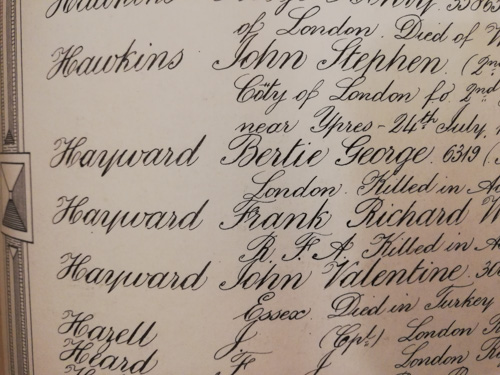 Hawkins
of London. Died of
Hawkins John Stephen. (2nd
City of London fs. 2nd
near Ypres - 24th July.
Hayward Bertie George. 6319
London. Killed in
Hayward Frank Richard
R. F. A. Killed in
Hayward John Valentine. 30
Essex. Died in Turkey
Hazell J. (Cpt.) London
Heard F. J. London